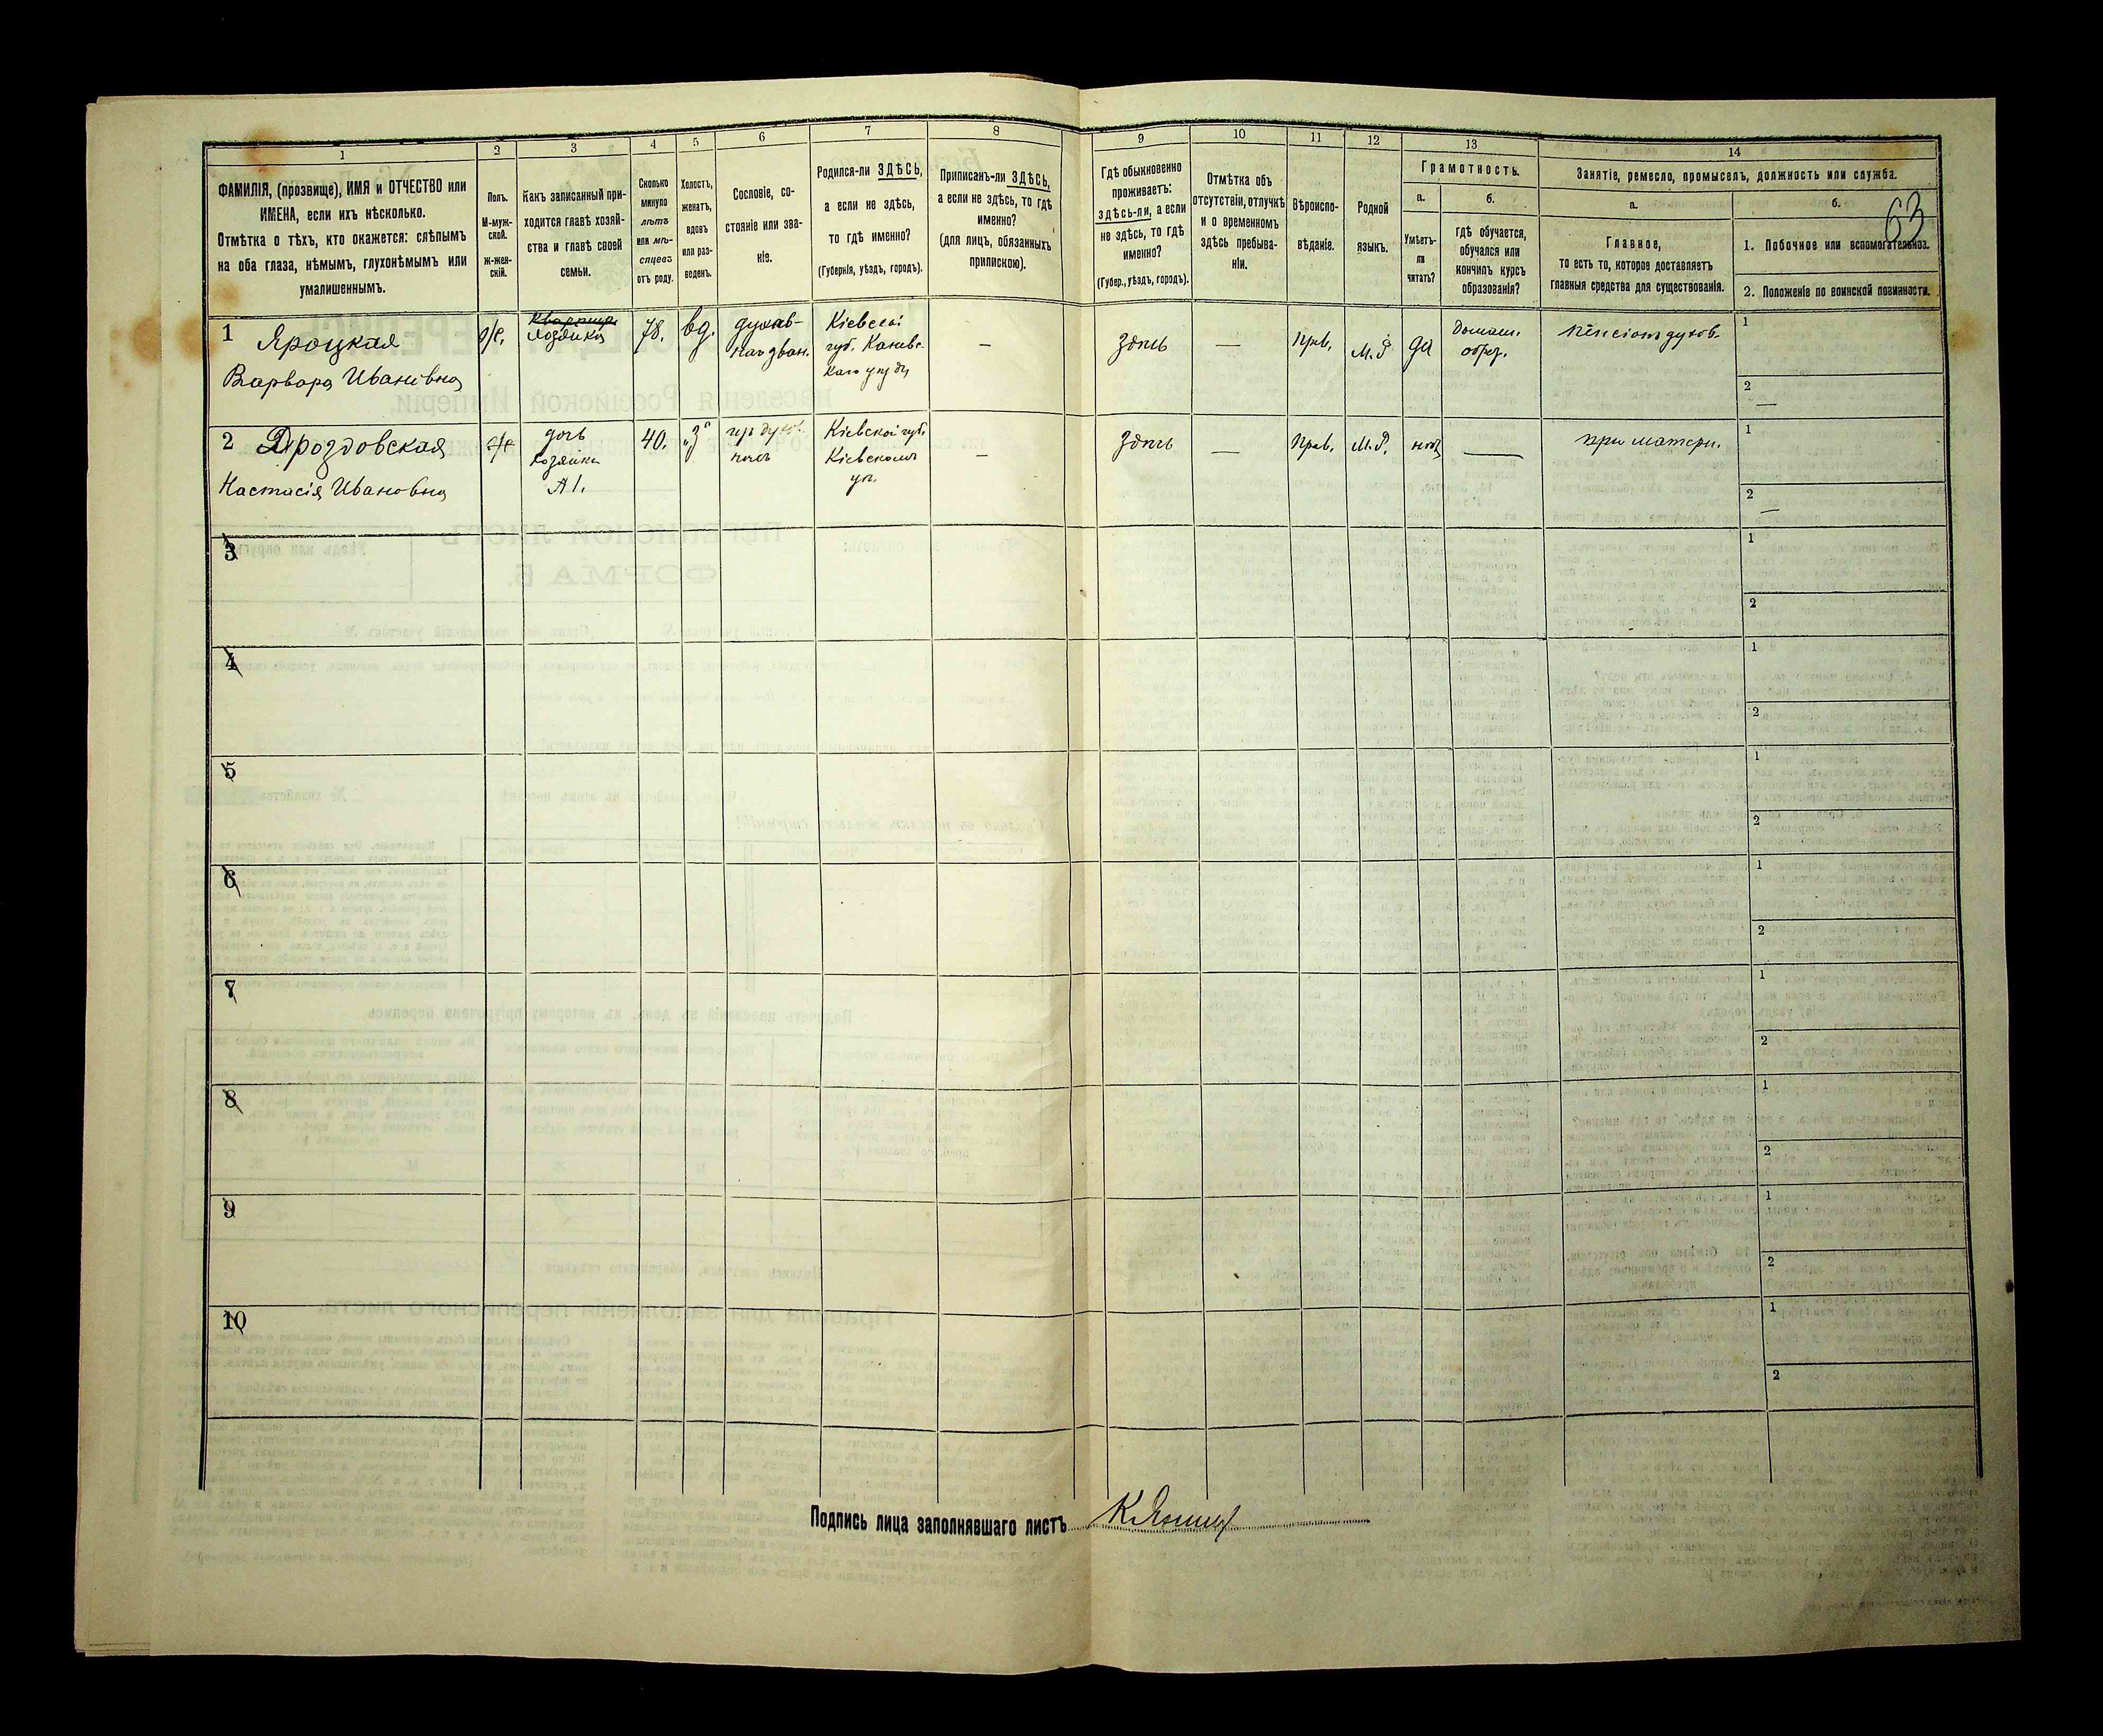 1
2
3
4
5
6
7
8
9
10
11
12
13
14
ФАМИЛІЯ, (прозвище), ИМЯ и ОТЧЕСТВО или
ИМЕНА, если ихъ нѣсколько.
Отмѣтка о тѣхъ, кто окажется: слѣпымъ
на оба глаза, нѣмымъ, глухонѣмымъ или
умалишеннымъ.
Полъ.
М-муж-
ской.
ж-жен-
скій.
Какъ записанный при-
ходится главѣ хозяй-
ства и главѣ своей
семьи.
Сколько
минуло
лѣтъ
или мѣ-
сяцевъ
отъ роду.
Холостъ,
женатъ,
вдовъ
или раз-
веденъ.
Сословіе, со-
стояніе или зва-
ніе.
Родился-ли ЗДѢСЬ,
а если не здѣсь,
то гдѣ именно?
(Губернія, уѣздъ, городъ).
Приписанъ-ли ЗДѢСЬ,
а если не здѣсь, то гдѣ
именно?
(для лицъ, обязанныхъ
припискою).
Гдѣ обыкновенно
проживаетъ:
здѣсь-ли, а если
не здѣсь, то гдѣ
именно?
(Губер., уѣздъ, городъ).
Отмѣтка объ
отсутствіи, отлучкѣ
и о временномъ
здѣсь пребыва-
ніи.
Вѣроиспо-
вѣданіе.
Родной
языкъ.
Грамотность.
а.
Умѣетъ-
ли
читать?
б.
гдѣ обучается,
обучался или
кончилъ курсъ
образованія?
Занятіе, ремесло, промыселъ, должность или служба.
а.
Главное,
то есть то, которое доставляетъ
главныя средства для существованія.
б.
63
1. Побочное или вспомогательное.
2. Положеніе по воинской повинности.
1 Яроцкая
Варвара Ивановна
ж.
хозяйка
78.
вд.
духов-
наг зван.
Кіевской
губ. Канев-
каго уѣзда
—
здѣсь
—
прав.
М.Р
да
домаш.
образ.
1
2
—
2 Дроздовская
Настасія Ивановна
ж
дочь
хозяйки
№1.
40.
„З“
Кіевской губ.
Кіевскомъ
уѣз.
—
здѣсь
—
прав.
М.Р.
нѣтъ
—
при матери.
1
2
—
3
1
2
4
1
2
5
1
2
6
1
2
7
1
2
8
1
2
9
1
2
10
1
2
Подпись лица заполнявшаго листъ